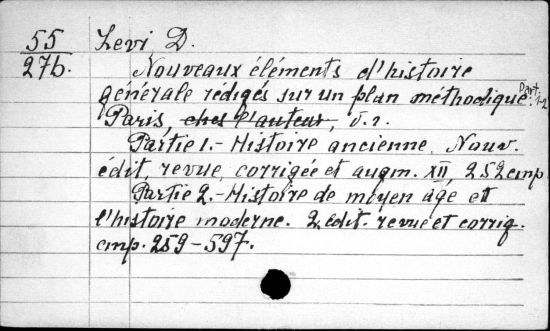 55
27b.
Levi, D.
Nouveaux éléments d'histoire
générale rédigés sur un plan méthodique. Part. 1-2
Paris, chez l'auteur, s.a.
Partie 1. - Histoire ancienne. Nouv.
édit, revue, corrigée et augm. XII, 252 стр.
Partie 2. - Histoire de moyen âge et
l'histoire moderne. 2 édit. revue et corrig.
стр. 259-597.